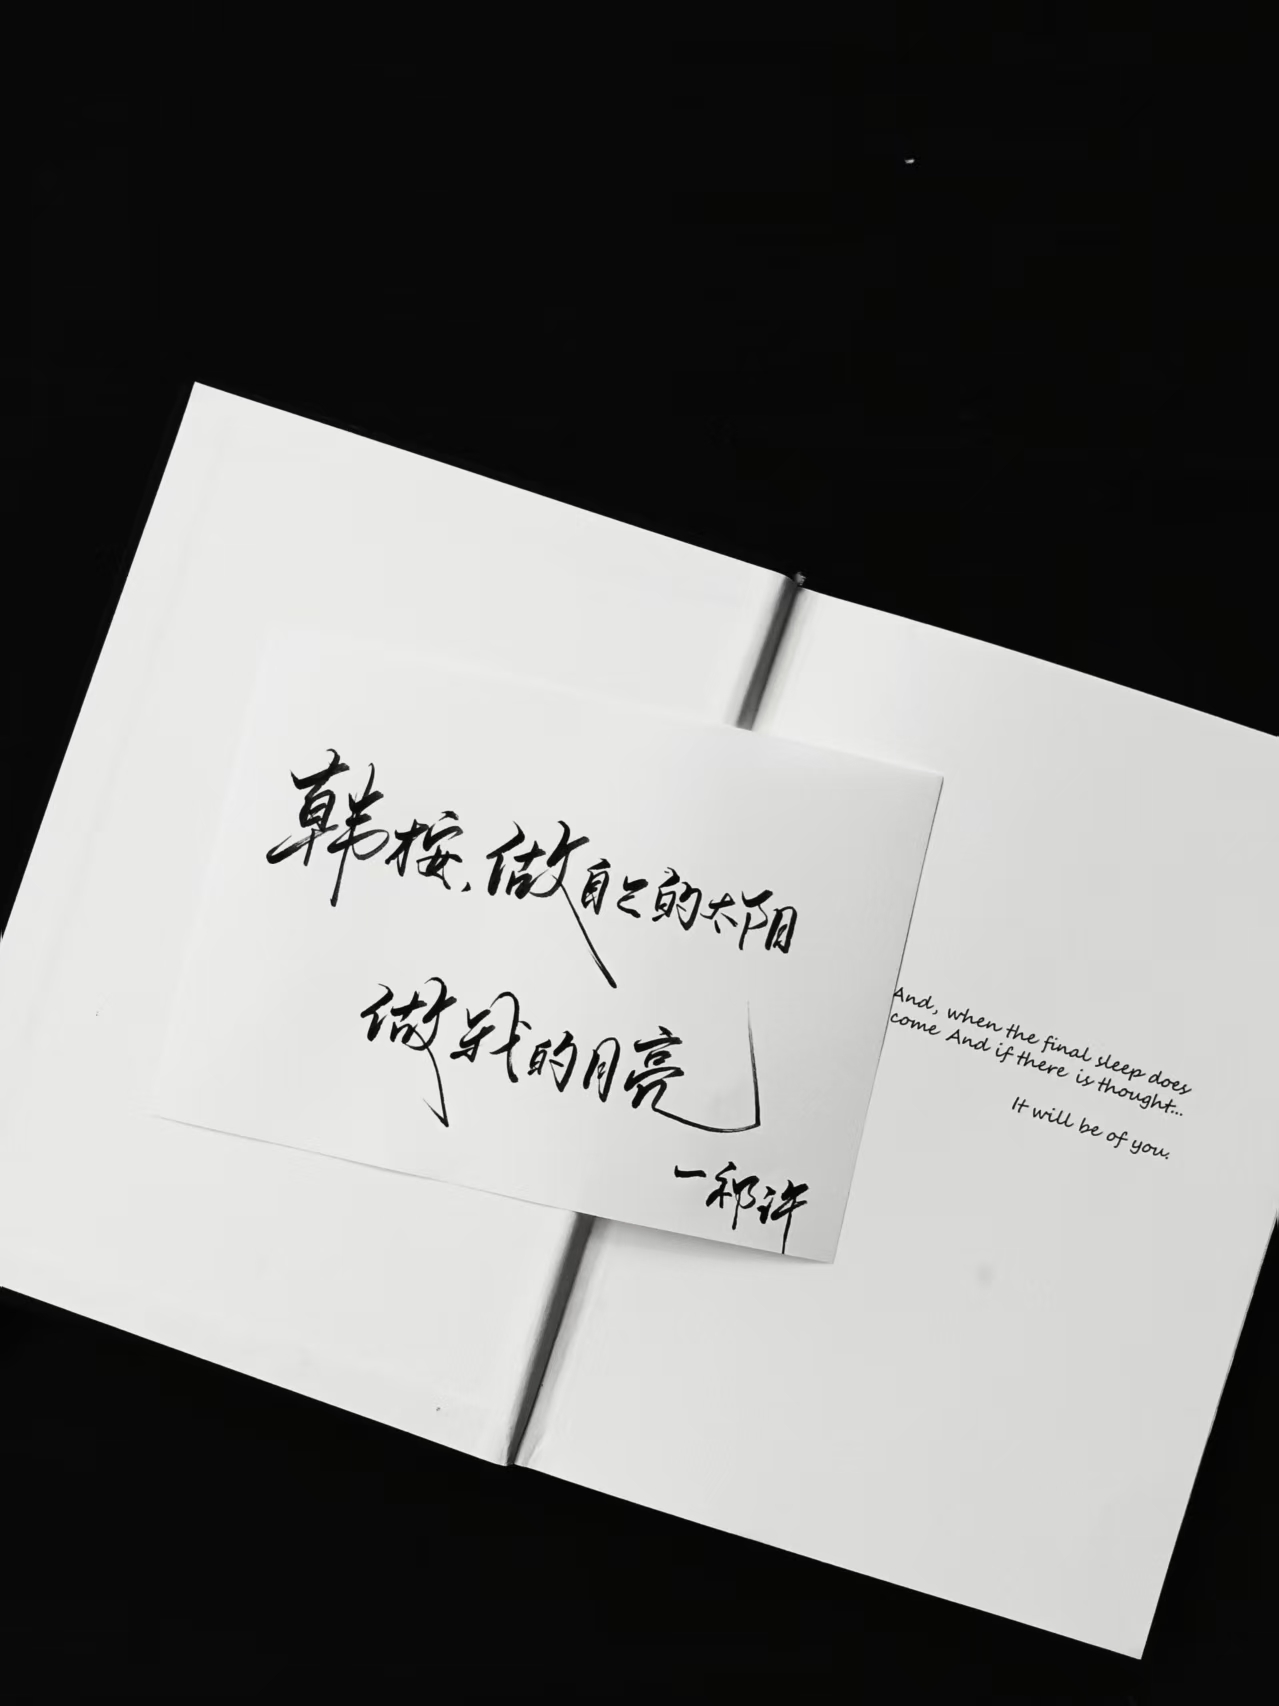 韩桉、做自己的太阳
做我的月亮
一祁许
And, when the final sleep does
come And if there is thought...
It will be of you.